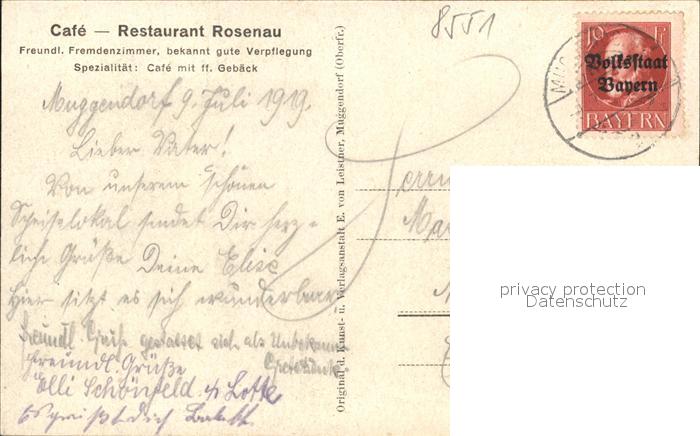 Café — Restaurant Rosenau
Freundl. Fremdenzimmer, bekannt gute Verpflegung
Spezialität: Café mit ff. Gebäck
8551
10 Pf
Volksstaat
Bayern
BAYERN
Muggendorf 9. Juli 1919.
Lieber Vater!
Von unserem schönen
Speiselokal sendet Dir herz-
liche Grüße Deine Elise
Hier sitzt es sich wunderbar
Freundl. Grüße gestattet sich als Unbekannte
Freundl. Grüße
Elli Schönfeld Lotte
Es grüßt dich
Original d. Kunst- u. Verlagsanstalt E. von Leistner, Muggendorf (Oberfr.)
Herrn
privacy protection
Datenschutz